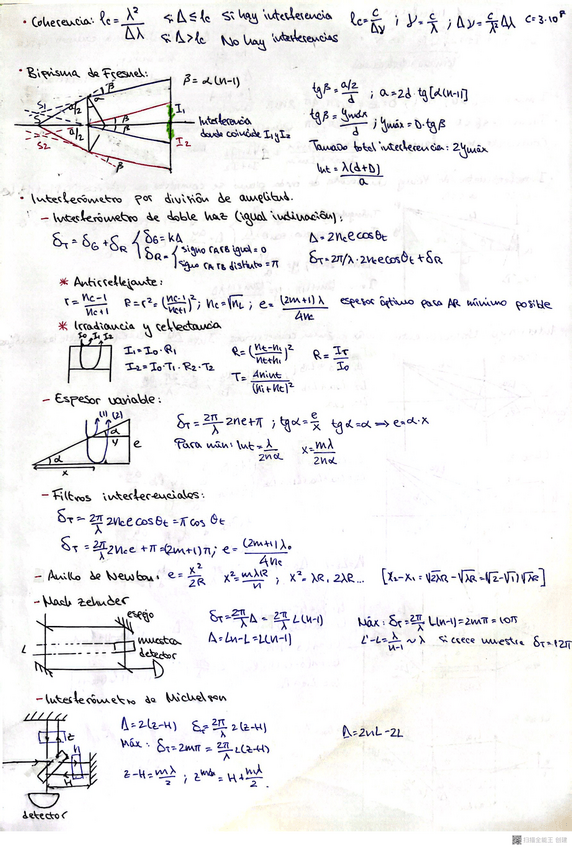 · Coherencia: lc = λ²/Δλ si Δ ≤ lc Si hay interferencia lc = c/Δν ; ν = c/λ ; Δν = c/λ² Δλ c = 3·10⁸
si Δ > lc No hay interferencias
· Biprisma de Fresnel: β = α(n-1)
tgβ = (a/2)/d ; a = 2d tg[α(n-1)]
tgβ = ymáx/D ; ymáx = D·tgβ
Tamaño total interferencia: 2ymáx
Int = λ(d+D)/a
S1 S S2 a/2 a/2 α β β β β I1 I2
Interferencia
donde coincide I1 y I2
· Interferómetro por división de amplitud.
- Interferómetro de doble haz (igual inclinación):
δT = δG + δR { δG = kΔ Δ = 2nc e cosθt
δR = { signo rA rB igual = 0
signo rA rB distinto = π δT = 2π/λ · 2nc e cosθt + δR
* Antirreflejante:
r = (nc-1)/(nc+1) R = r² = (nc-1/nc+1)² ; nc = √nL ; e = (2m+1)λ/4nc espesor óptimo para AR mínimo posible
* Irradiancia y reflectancia
I0 I1 I2 I1 = I0·R1 R = (nt-ni/nt+ni)² R = Ir/I0
I2 = I0·T1·R2·T2 T = 4nint/(ni+nt)²
- Espesor variable:
(1) (2) α y e α x
δT = 2π/λ 2ne+π ; tgα = e/x tgα = α ⟹ e = α·x
Para mín: Int = λ/2nα x = mλ/2nα
- Filtros interferenciales:
δT = 2π/λ 2nc e cosθt = π cos θt
δT = 2π/λ 2nc e + π = (2m+1)π ; e = (2m+1)λ0/4nc
- Anillo de Newton: e = x²/2R x² = mλR/n ; x² = λR, 2λR... [x2-x1 = √2λR - √λR = (√2-√1)√λR]
- Mach zehnder
espejo
muestra
detector
L
δT = 2π/λ Δ = 2π/λ L(n-1) Máx: δT = 2π/λ L(n-1) = 2mπ = 10π
Δ = Ln-L = L(n-1) L'-L = λ/n-1 ~ λ si crece muestra δT = 12π
- Interferómetro de Michelson
Δ = 2(z-H) δT = 2π/λ 2(z-H) Δ = 2nL-2L
Máx: δT = 2mπ = 2π/λ 2(z-H)
z-H = mλ/2 ; zmáx = H + mλ/2.
z H
detector
扫描全能王 创建